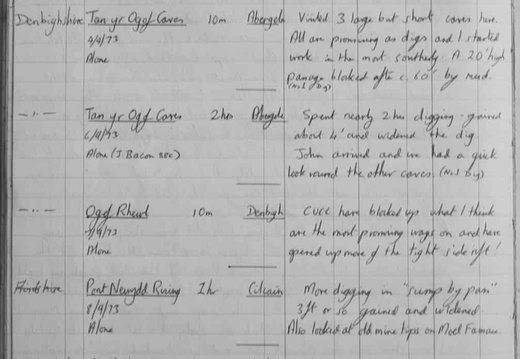 Denbighshire Tan yr Ogof Caves 10m Abergele Visited 3 large but short caves here.
4/4/73 All are promising as digs and I started
Alone work in the most southerly. A 20' high
passage blocked after c. 60' by mud.
(No.1 Dig)
—"— Tan yr Ogof Caves 2hrs Abergele Spent nearly 2 hrs digging - gained
6/4/73 about 4' and widened the dig.
Alone (J. Bacon) John arrived and we had a quick
look round the other caves. (No.1 Dig)
—"— Ogof Rhewl 10m Denbigh CUCC have blocked up what I think
/9/73 are the most promising ways on and have
Alone opened up more of the tight side rift!
Flintshire Pont Newydd Rising 2hr Cilcain More digging in "sump by pan"
8/9/73 3ft or so gained and widened.
Alone Also looked at old mine tips on Moel Famau.